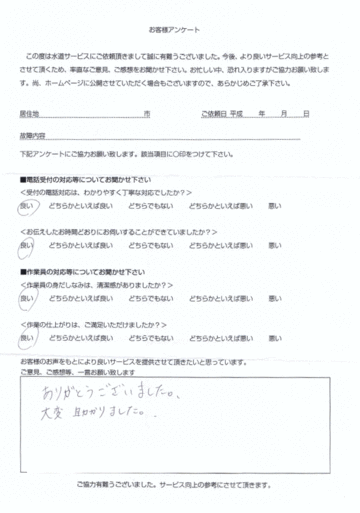 お客様アンケート
この度は水道サービスにご依頼頂きまして誠に有難うございました。今後、より良いサービス向上の参考と
させて頂くため、率直なご意見、ご感想をお聞かせ下さい。お忙しい中、恐れ入りますがご協力お願い致しま
す。尚、ホームページに公開させていただく場合もございますので、あらかじめご了承下さい。
居住地 市 ご依頼日 平成 年 月 日
故障内容
下記アンケートにご協力お願い致します。該当項目に〇印をつけて下さい。
■電話受付の対応等についてお聞かせ下さい
<受付の電話対応は、わかりやすく丁寧な対応でしたか？>
良い どちらかといえば良い どちらでもない どちらかといえば悪い 悪い
<お伝えしたお時間どおりにお伺いすることができていましたか？>
良い どちらかといえば良い どちらでもない どちらかといえば悪い 悪い
■作業員の対応等についてお聞かせ下さい
<作業員の身だしなみは、清潔感がありましたか？>
良い どちらかといえば良い どちらでもない どちらかといえば悪い 悪い
<作業の仕上がりは、ご満足いただけましたか？>
良い どちらかといえば良い どちらでもない どちらかといえば悪い 悪い
お客様のお声をもとにより良いサービスを提供させて頂きたいと思っています。
ご意見、ご感想等、一言お願い致します
ありがとうございました。
大変 助かりました。
ご協力有難うございました。サービス向上の参考にさせて頂きます。